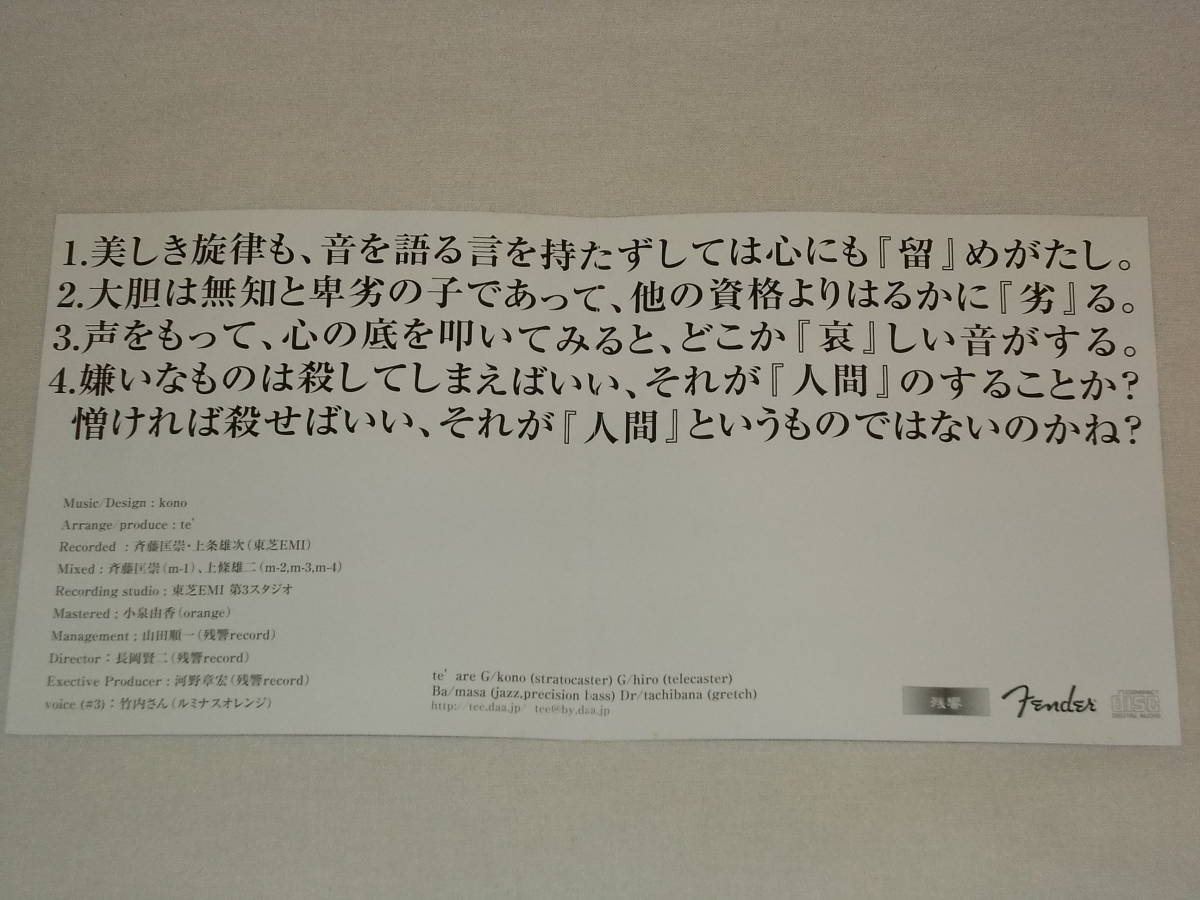 1.美しき旋律も、音を語る言を持たずしては心にも『留』めがたし。
2.大胆は無知と卑劣の子であって、他の資格よりはるかに『劣』る。
3.声をもって、心の底を叩いてみると、どこか『哀』しい音がする。
4.嫌いなものは殺してしまえばいい、それが『人間』のすることか?
憎ければ殺せばいい、それが『人間』というものではないのかね?
Music/Design : kono
Arrange/produce : te'
Recorded : 斉藤匡崇・上条雄次(東芝EMI)
Mixed : 斉藤匡崇(m-1)、上條雄二(m-2,m-3,m-4)
Recording studio ; 東芝EMI 第3スタジオ
Mastered ; 小泉由香(orange)
Management ; 山田順一(残響record)
Director : 長岡賢二(残響record)
Exective Producer : 河野章宏(残響record)
voice (#3) : 竹内さん(ルミナスオレンジ)
te' are G/kono (stratocaster) G/hiro (telecaster)
Ba/masa (jazz,precision bass) Dr/tachibana (gretch)
http://tee.daa.jp/ tee@by.daa.jp
残響
Fender
COMPACT
disc
DIGITAL AUDIO